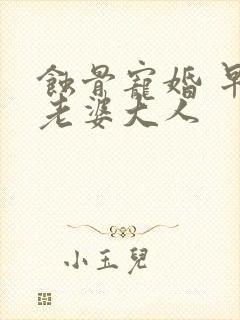 蝕骨寵婚 早
老婆大人
小玉兒